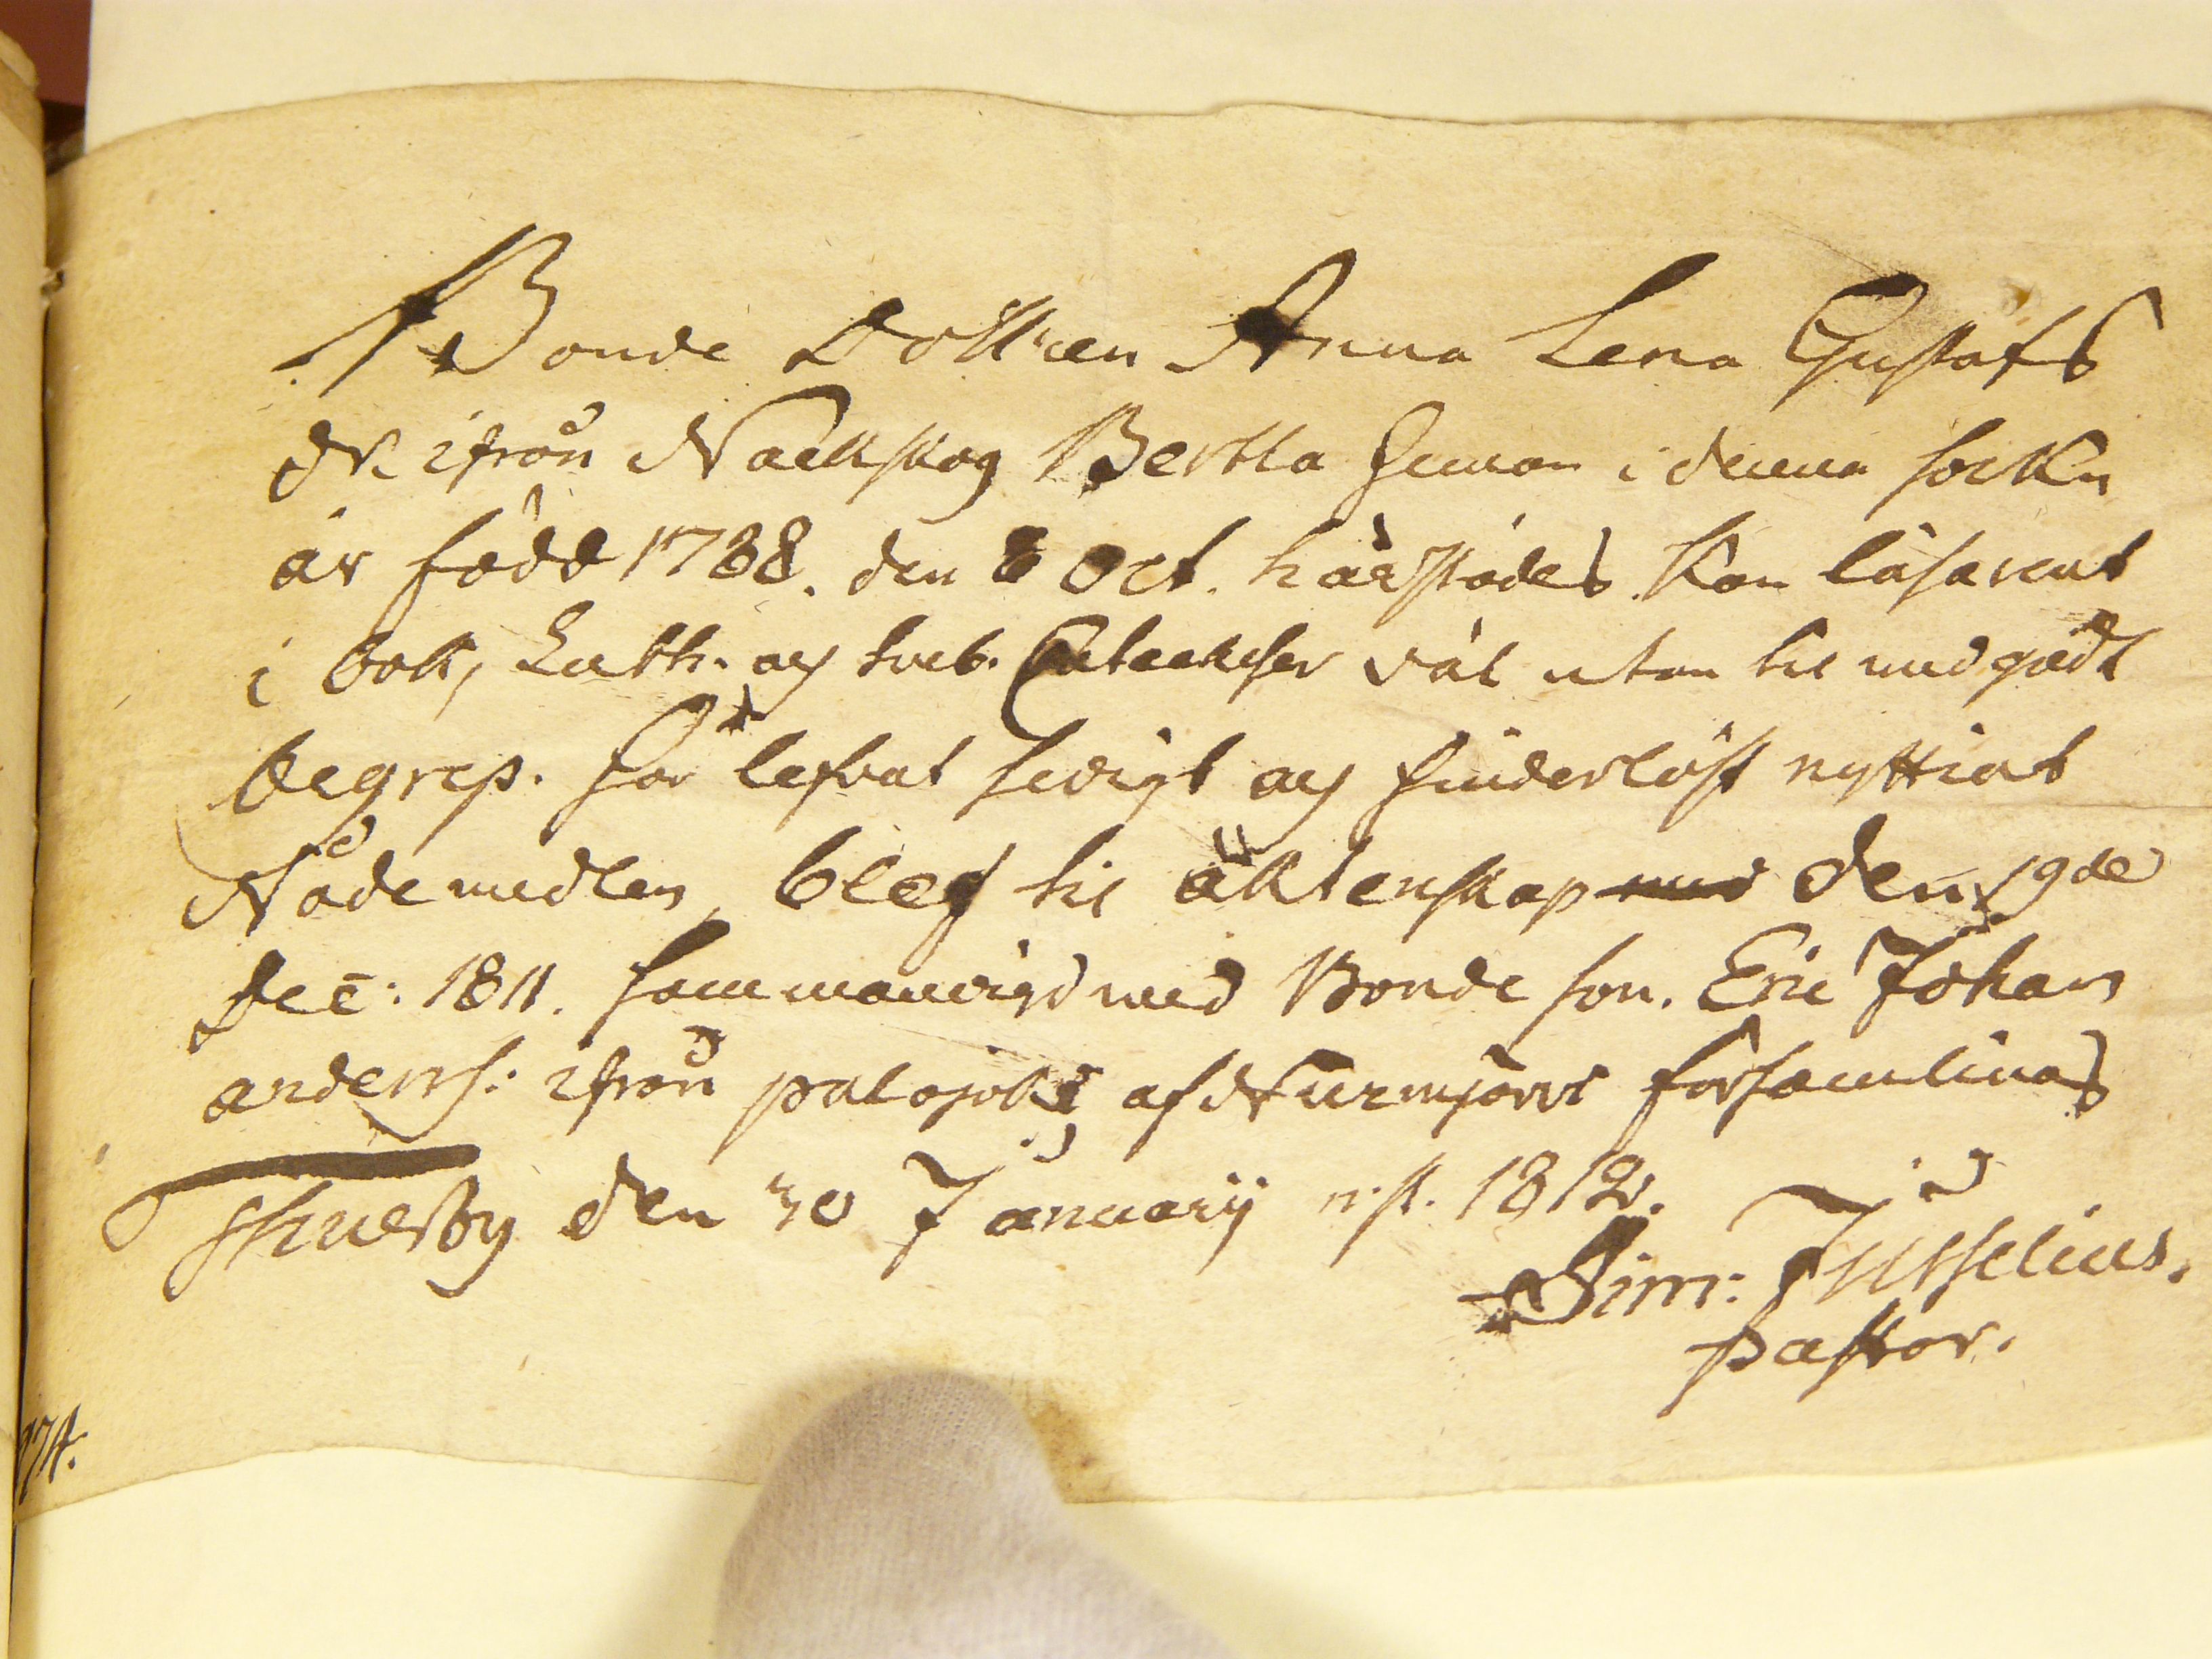 Bonde Dottren Anna Lena Gustafs
dr. ifrån Näckskog Bertila hemman i denna sockn
är född 1788. den 8 Oct. härstädes kan läsa rent
i bok, Luth. och Sveb. Catecheser väl utan til med godt
begrep. Har lefvat sedigt och hinderlöst nyttiat
Nådemedlen, blef til äktenskap den 19de
Dec: 1811. sammanvigd med Bonde son. Eric Johan
anderss: ifrån palojoki af Nurmjervi församlings
Thusby den 30 January n. st. 1812.
Sim: Jusselius.
pastor.
174.